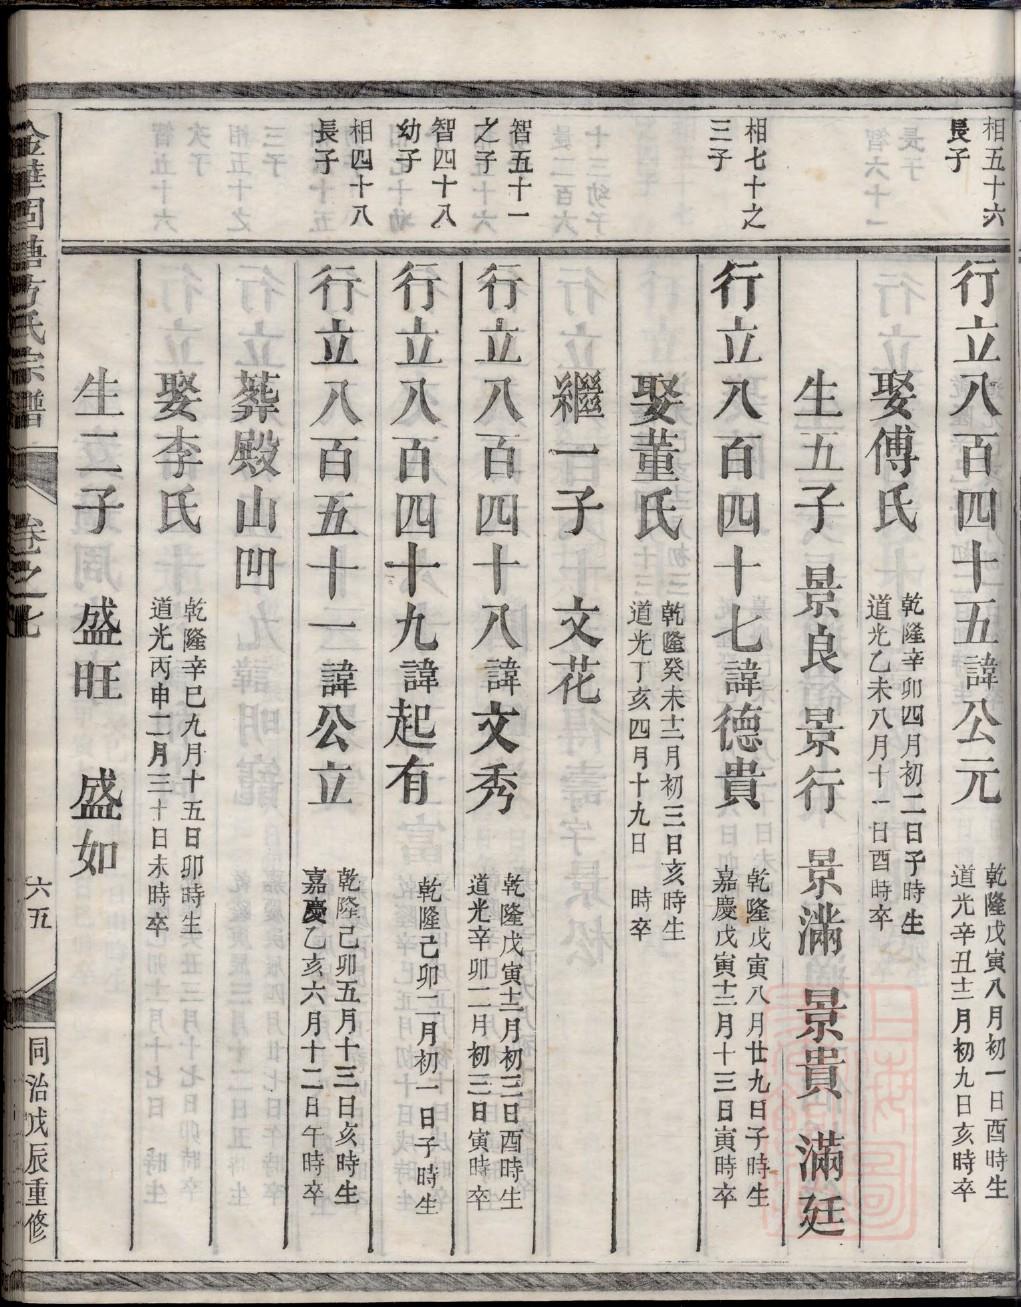 相五十六
長子
行立八百四十五諱公元
乾隆戊寅八月初一日酉時生
道光辛丑十二月初九日亥時卒
娶傅氏
乾隆辛卯四月初二日子時生
道光乙未八月十一日酉時卒
生五子 景良 景行 景滿 景貴 滿廷
相七十之
三子
行立八百四十七諱德貴
乾隆戊寅八月廿九日子時生
嘉慶戊寅十二月十三日寅時卒
娶董氏
乾隆癸未十二月初三日亥時生
道光丁亥四月十九日 時卒
繼一子 文花
智五十一
之子
行立八百四十八諱文秀
乾隆戊寅十二月初三日酉時生
道光辛卯二月初三日寅時卒
智四十八
幼子
行立八百四十九諱起有
乾隆己卯二月初一日子時生
相四十八
長子
行立八百五十一諱公立
乾隆己卯五月十三日亥時生
嘉慶乙亥六月十二日午時卒
葬殿山凹
娶李氏
乾隆辛巳九月十五日卯時生
道光丙申二月三十日未時卒
生二子 盛旺 盛如
卷之七
六五
同治戊辰重修